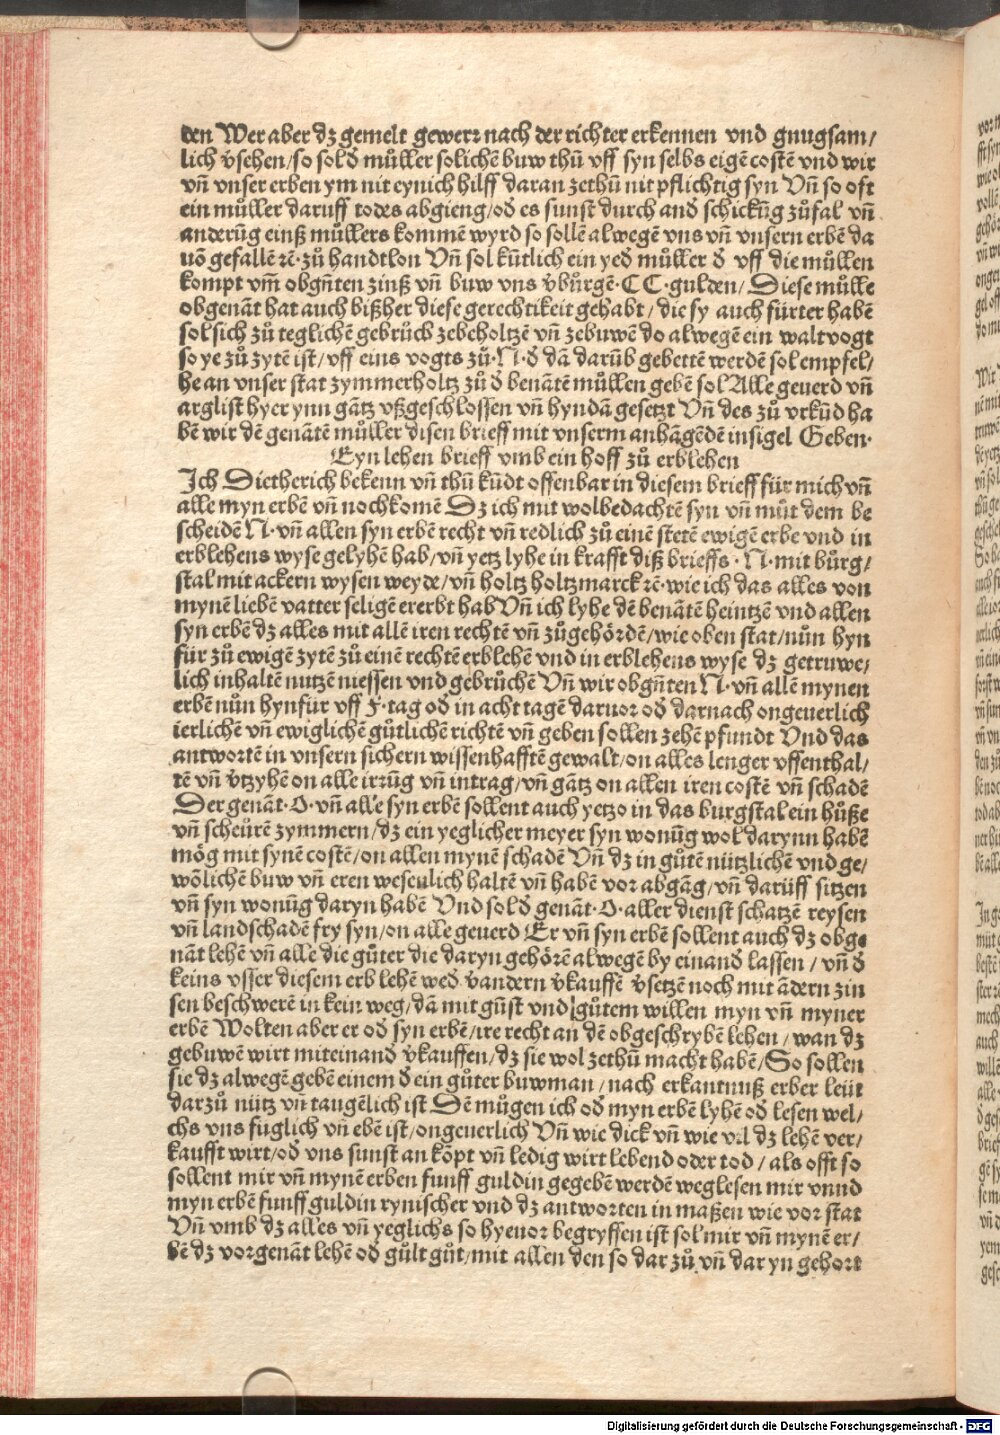 den Wer aber dz gemelt gewerꝛ nach der richter erkennen vnd gnugsam/
lich v̉sehen/so sol d̉ mů̈ller solichē buw thů vff syn selbs eigē costē vnd wir
vn̄ vnser erben ym nit eynich hilff daran zethů nit pflichtig syn Vn̄ so oft
ein můller daruff todes abgieng/od̉ es sunst durch and̉ schickūg zůfal vn̄
anderūg einß můllers kommē wyrd so sollē alwegē vns vn̄ vnsern erbē da
uō gefallē ꝛē·zů handtlon Vn̄ sol kūtlich ein yed̉ můller d̉ vff die můllen
kompt vm̄ obgn̄ten zinß vn̄ buw vns v̉bůrgē·CC·gulden/Diese můlle
obgenāt hat auch bißher diese gerechtikeit gehabt/die sy auch fürter habē
sol sich zů teglichē gebrůch zebeholtzē vn̄ zebuwē do alwegē ein waltvogt
so ye zů zytē ist/vff eins vogts zů·N·d̉ dā darüb gebettē werdē sol empfel/
he an vnser stat zymmerholtz zů d̉ benātē můllen gebē sol Alle geuerd vn̄
arglist hyer ynn gātz vßgeschlossen vn̄ hyndā gesetzt Vn̄ des zů vrkūd ha
bē wir dē genātē můller disen brieff mit vnserm anhāgēdē insigel Geben·
Eyn lehen brieff vmb ein hoff zů erblehen
Ich Dietherich bekenn vn̄ thů kūdt offenbar in diesem brieff für mich vn̄
alle myn erbē vn̄ nochkomē Dz ich mit wolbedachtē syn vn̄ můt dem be
scheidē N·vn̄ allen syn erbē recht vn̄ redlich zů einē stetē ewigē erbe vnd in
erblehens wyse gelyhē hab/vn̄ yetz lyhe in krafft diß brieffs·N·mit bůrg/
stal mit ackern wysen weyde/vn̄ holtz holtzmarck ꝛē·wie ich das alles von
mynē liebē vatter seligē ererbt hab Vn̄ ich lyhe dē benātē heintzē vnd allen
syn erbē dz alles mit allē iren rechtē vn̄ zůgehördē/wie oben stat/nůn hyn
für zů ewigē zytē zů einē rechtē erblehē vnd in erblehens wyse dz getruwe/
lich inhaltē nutzē niessen vnd gebrůchē Vn̄ wir obgn̄ten N·vn̄ allē mynen
erbē nůn hynfür vff F·tag od̉ in acht tagē daruor od̉ darnach ongeuerlich
ierlichē vn̄ ewiglichē gůtlichē richtē vn̄ geben sollen zehē pfundt Vnd das
antwortē in vnsern sichern wissenhafftē gewalt/on alles lenger vffenthal/
tē vn̄ v̉tzyhē on alle irrūg vn̄ intrag/vn̄ gātz on allen iren costē vn̄ schadē
Der genāt·O·vn̄ alle syn erbē sollent auch yetzo in das burgstal ein hůße
vn̄ scheürē zymmern/dz ein yeglicher meyer syn wonūg wol darynn habē
mög mit synē costē/on allen mynē schadē Vn̄ dz in gůtē nützlichē vnd ge/
wōlichē buw vn̄ eren wesenlich haltē vn̄ habē vor abgāg/vn̄ darüff sitzen
vn̄ syn wonūg daryn habē Vnd sol d̉ genāt·O·aller dienst schatzē reysen
vn̄ landschadē fry syn/on alle geuerd Er vn̄ syn erbē sollent auch dz obge
nāt lehē vn̄ alle die gůter die daryn gehörē alwegē by einand̉ lassen/vn̄ d̉
keins vsser diesem erb lehē wed̉ v̉andern v̉kauffē v̉setzē noch mit ādern zin
sen beschwerē in kein weg/dā mit gūst vnd gůtem willen myn vn̄ myner
erbē Wolten aber er od̉ syn erbē/ire recht an dē obgeschrybē lehen/wan dz
gebuwē wirt miteinand̉ v̉kauffen/dz sie wol zethů macht habē/So sollen
sie dz alwegē gebē einem d̉ ein gůter buwman/nach erkantnuß erber leüt
darzů nütz vn̄ taugēlich ist Dē můgen ich od̉ myn erbē lyhē od̉ lesen wel/
chs vns fuglich vn̄ ebē ist/ongeuerlich Vn̄ wie dick vn̄ wie vil dz lehē ver/
kaufft wirt/od̉ vns sunst an kōpt vn̄ ledig wirt lebend oder tod/als offt so
sollent mir vn̄ mynē erben funff guldin gegebē werdē weglesen mir vnnd
myn erbē funff guldin rynischer vnd dz antworten in maßen wie vor stat
Vn̄ vmb dz alles vn̄ yeglichs so hyeuor begryffen ist sol mir vn̄ mynē er/
bē dz vorgenāt lehē od̉ gůlt gůt/mit allen den so dar zů vn̄ dar yn gehort
Digitalisierung gefördert durch die Deutsche Forschungsgemeinschaft - DFG